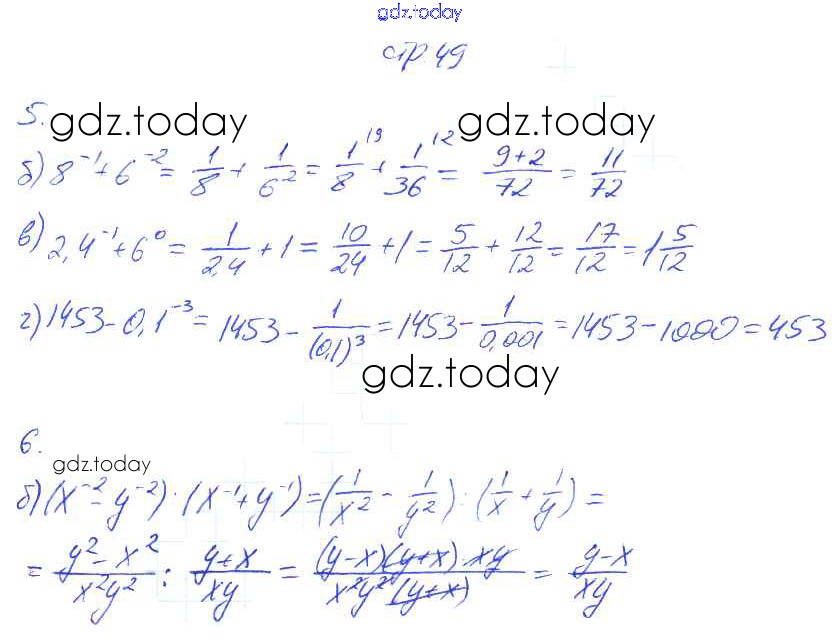 gdz.today
стр. 49
5.
gdz.today gdz.today
б) 8⁻¹ + 6⁻² = 1/8 + 1/6⁻² = 1/8 |9 + 1/36 |2 = (9+2)/72 = 11/72
в) 2,4⁻¹ + 6⁰ = 1/2,4 + 1 = 10/24 + 1 = 5/12 + 12/12 = 17/12 = 1 5/12
г) 1453 - 0,1⁻³ = 1453 - 1/(0,1)³ = 1453 - 1/0,001 = 1453 - 1000 = 453
gdz.today
6.
gdz.today
б) (x⁻² - y⁻²) : (x⁻¹ + y⁻¹) = (1/x² - 1/y²) : (1/x + 1/y) =
= (y² - x²)/(x²y²) : (y+x)/(xy) = ((y-x)(y+x)·xy)/(x²y²(y+x)) = (y-x)/(xy)